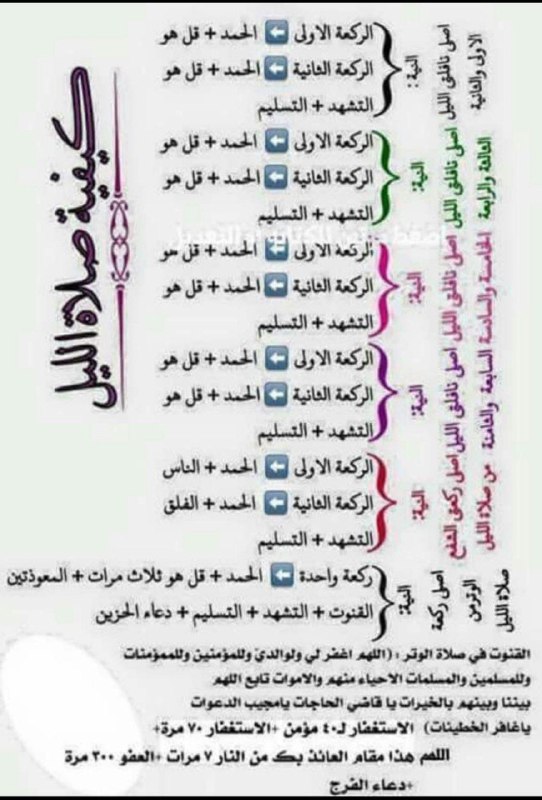 كيفية صلاة الليل
الاولى والثانية
اصلي نافلتي الليل
النية:
الركعة الاولى ⬅ الحمد + قل هو
الركعة الثانية ⬅ الحمد + قل هو
التشهد + التسليم
الثالثة والرابعة
اصلي نافلتي الليل
النية:
الركعة الاولى ⬅ الحمد + قل هو
الركعة الثانية ⬅ الحمد + قل هو
التشهد + التسليم
الخامسة والسادسة
اصلي نافلتي الليل
النية:
الركعة الاولى ⬅ الحمد + قل هو
الركعة الثانية ⬅ الحمد + قل هو
التشهد + التسليم
السابعة والثامنة
اصلي نافلتي الليل
النية:
الركعة الاولى ⬅ الحمد + قل هو
الركعة الثانية ⬅ الحمد + قل هو
التشهد + التسليم
اصلي ركعتي الشفع
من صلاة الليل
النية:
الركعة الاولى ⬅ الحمد + الناس
الركعة الثانية ⬅ الحمد + الفلق
التشهد + التسليم
اصلي ركعة
الوتر من
صلاة الليل
النية:
ركعة واحدة ⬅ الحمد + قل هو ثلاث مرات + المعوذتين
القنوت + التشهد + التسليم + دعاء الحزين
القنوت في صلاة الوتر : (اللهم اغفر لي ولوالديّ وللمؤمنين وللمؤمنات
وللمسلمين والمسلمات الاحياء منهم والاموات تابع اللهم
بيننا وبينهم بالخيرات يا قاضي الحاجات يامجيب الدعوات
ياغافر الخطيئات) الاستغفار لـ٤٠ مؤمن +الاستغفار ٧٠ مرة+
اللهم هذا مقام العائذ بك من النار ٧ مرات +العفو ٣٠٠ مرة
+دعاء الفرج